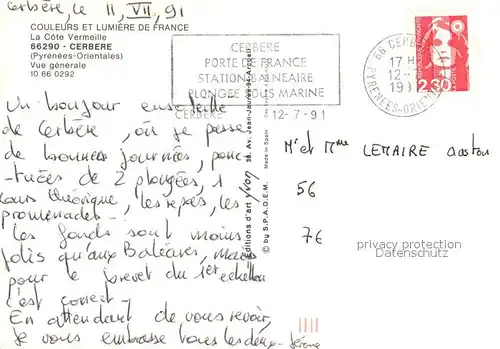 Cerbère, le 11, VII, 91
COULEURS ET LUMIÈRE DE FRANCE
La Côte Vermeille
66290 - CERBERE
(Pyrénées-Orientales)
Vue générale
10 66 0292
CERBERE
PORTE DE FRANCE
STATION BALNEAIRE
PLONGEE SOUS MARINE
CERBERE 12-7-91
66 CERBERE
17 H
12-7
191
PYRENEES-ORIENTALES
2,30
Un bonjour ensoleillé
de Cerbère, où je passe
de bonnes journées, ponc-
-tuées de 2 plongées, 1
cours théorique, les repas, les
promenades -
Les fonds sont moins
jolis qu'aux Baléares, mais
pour le brevet du 1er échelon
c'est correct -
En attendant de vous revoir,
je vous embrasse tous les deux - Jérome
Editions d'art Yvon 38, Av. Jean-Jaurès
© by S.P.A.D.E.M. Made in Spain
Mr et Mme LEMAIRE Gaston
56
76
privacy protection
Datenschutz